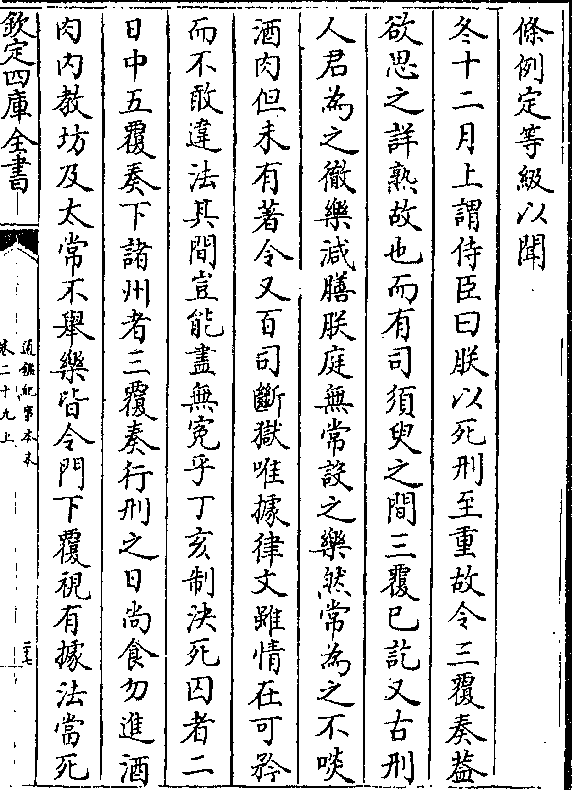 條例定等級以聞
冬十二月上謂侍臣曰朕以死刑至重故令三覆奏葢
欲思之詳熟故也而有司須臾之間三覆已訖又古刑
人君為之徹樂減膳朕庭無常設之樂然常為之不啖
酒肉但未有著令又百司斷獄唯據律文雖情在可矜
而不敢違法其間豈能盡無寃乎丁亥制決死囚者二
日中五覆奏下諸州者三覆奏行刑之日尚食勿進酒
肉内教坊及太常不舉樂皆令門下覆視有據法當死
欽定四庫全書
通鑑紀事本末
卷二十九上
二七